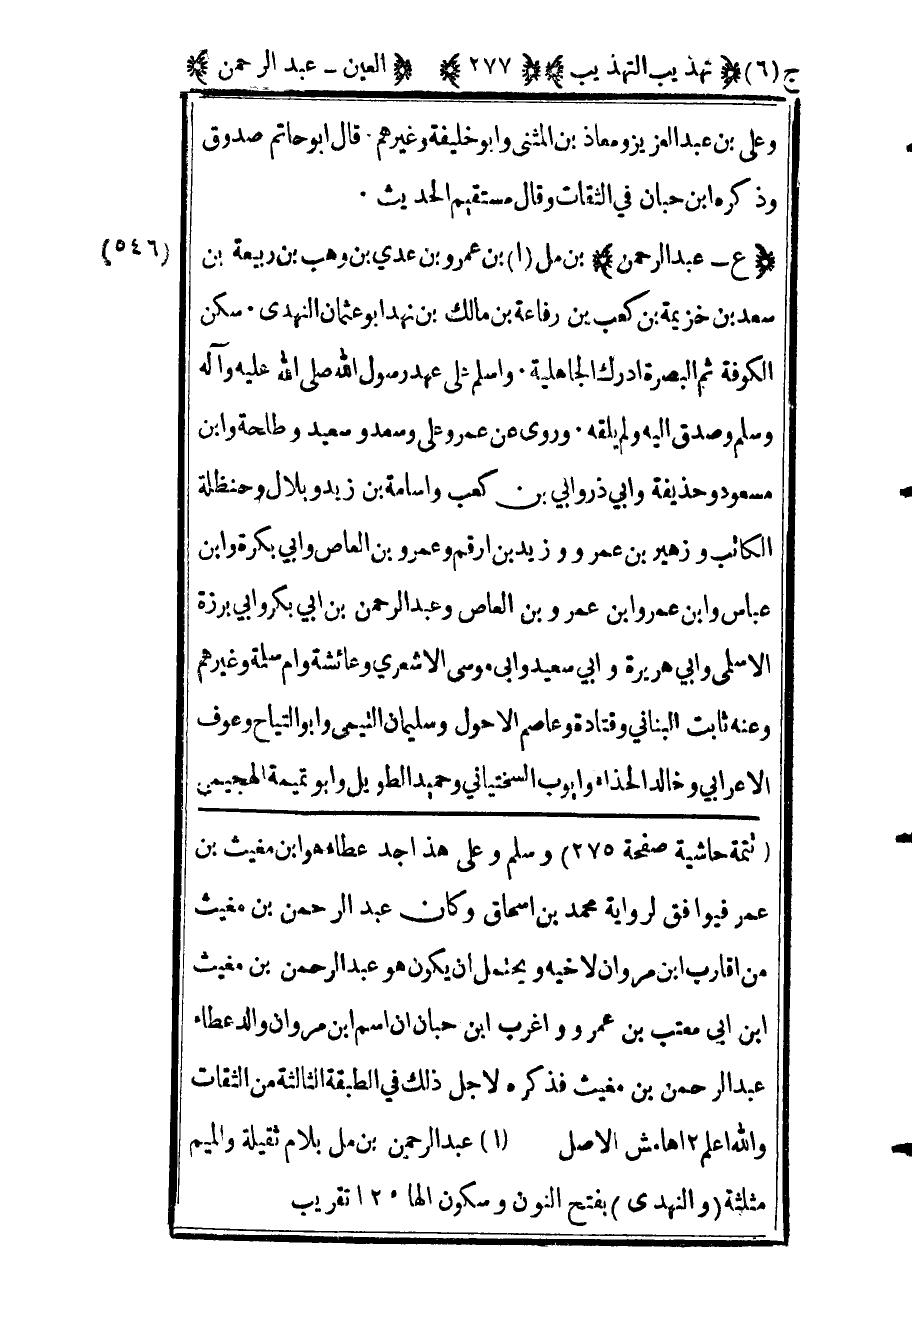 ج (٦) ﴿ تهذيب التهذيب ﴾ ﴿ ٢٧٧ ﴾ ﴿ العين ـ عبد الرحمن ﴾
وعلي بن عبدالعزيز ومعاذ بن المثنى وابو خليفة وغيرهم ٠ قال ابو حاتم صدوق
وذكره ابن حبان في الثقات وقال مستقيم الحديث ٠
(٥٤٦) ﴿ ع ـ عبدالرحمن ﴾ بن مل (١) بن عمرو بن عدي بن وهب بن ربيعة بن
سعد بن خزيمة بن كعب بن رفاعة بن مالك بن نهد ابو عثمان النهدى ٠ سكن
الكوفة ثم البصرة ادرك الجاهلية ٠ واسلم على عهد رسول الله صلى الله عليه وآله
وسلم وصدق اليه ولم يلقه ٠ وروى عن عمر وعلى وسعد و سعيد و طلحة وابن
مسعود وحذيفة وابي ذر وابي بن كعب واسامة بن زيد وبلال وحنظلة
الكاتب و زهير بن عمر و و زيد بن ارقم وعمرو بن العاص وابي بكرة وابن
عباس وابن عمر وابن عمر و بن العاص وعبدالرحمن بن ابي بكر وابي برزة
الاسلمى وابي هريرة و ابي سعيد وابى موسى الاشعري وعائشة وام سلمة وغيرهم
وعنه ثابت البناني وقتادة وعاصم الاحول وسليمان التيمى وابو التياح وعوف
الاعرابي وخالد الحذاء وايوب السختياني وحميد الطويل وابو تميمة الهجيمي
( تتمة حاشية صفحة ٢٧٥) و سلم و على هذا جد عطاء هو ابن مغيث بن
عمر فيوافق لرواية محمد بن اسحاق وكان عبد الرحمن بن مغيث
من اقارب ابن مروان لاخيه ويحتمل ان يكون هو عبدالرحمن بن مغيث
ابن ابي معتب بن عمر و و اغرب ابن حبان ان اسم ابن مروان والد عطاء
عبدالرحمن بن مغيث فذكره لاجل ذلك في الطبقة الثالثة من الثقات
والله اعلم ١٢ هامش الاصل (١) عبدالرحمن بن مل بلام ثقيلة والميم
مثلثة (والنهدى) بفتح النون و سكون الهاء ١٢ تقريب